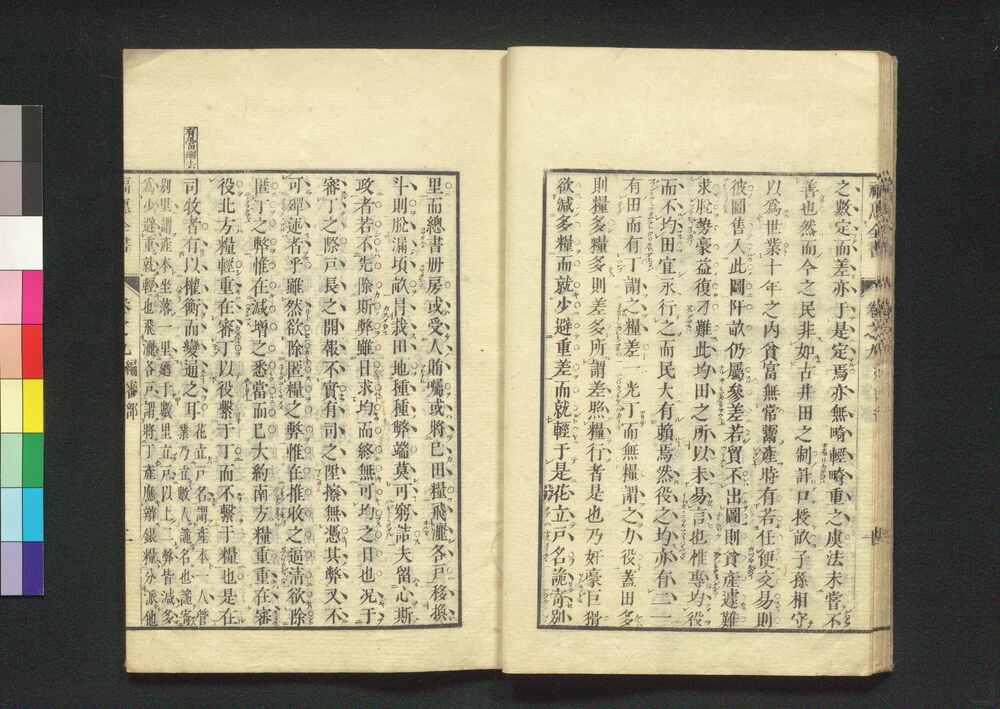 之數定而差亦于是定焉亦無畸輕畸重之虞法未嘗不
善也然而今之民非如古井田之制計口授畝子孫相守
以為世業十年之內貧富無常鬻產時有若任便交易則
彼圖售入此圖阡畝仍屬參差若買不出圖則貧產遽難
求脫勢豪益復刁難此均田之所以未易言也惟專均役
而不均田宜永行之而民大有賴焉然役之均亦有二一
有田而有丁謂之糧差一光丁而無糧謂之力役蓋田多
則糧多糧多則差多所謂差照糧行者是也乃奸豪巨猾
欲減多糧而就少避重差而就輕于是花立戶名詭寄別
里而總書册房或受人賄囑或將己田糧飛灑各戶移換
斗則脫漏頃畝月找田地種種弊端莫可窮詰夫留心斯
政者若不先除斯弊雖日求均而終無可均之日也况于
審丁之際戶長之開報不實有司之陞擦無憑其弊又不
可殫述者乎雖然欲除匿糧之弊惟在推收之逼清欲除
匿丁之弊惟在減增之悉當而已大約南方糧重重在審
役北方糧輕重在審丁以役繫于丁而不繫于糧也是在
司牧者有以權衡而變通之耳 花立戶名謂產本一人管業乃立數人詭名也詭寄
別里謂產本坐落一里過于數里立戶以上二弊皆減多
為少避重就輕也飛灑各戶謂將丁產應辦銀糧分派他
福惠全書
卷之九
編審部